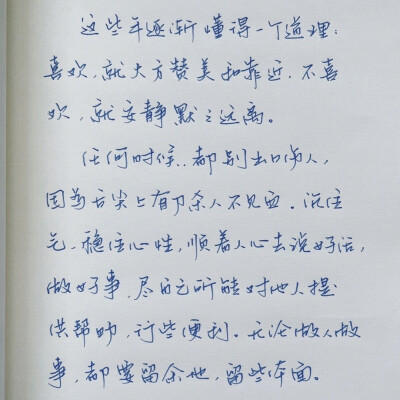 这些年逐渐懂得一个道理:
喜欢,就大方赞美和靠近,不喜
欢,就安静默之远离。
任何时候,都别出口伤人,
因为舌尖上有刀杀人不见血。沉住
气,稳住心性,顺着人心去说好话,
做好事,尽自己所能对他人提
供帮助,行些便利。无论做人做
事,都要留余地,留些体面。